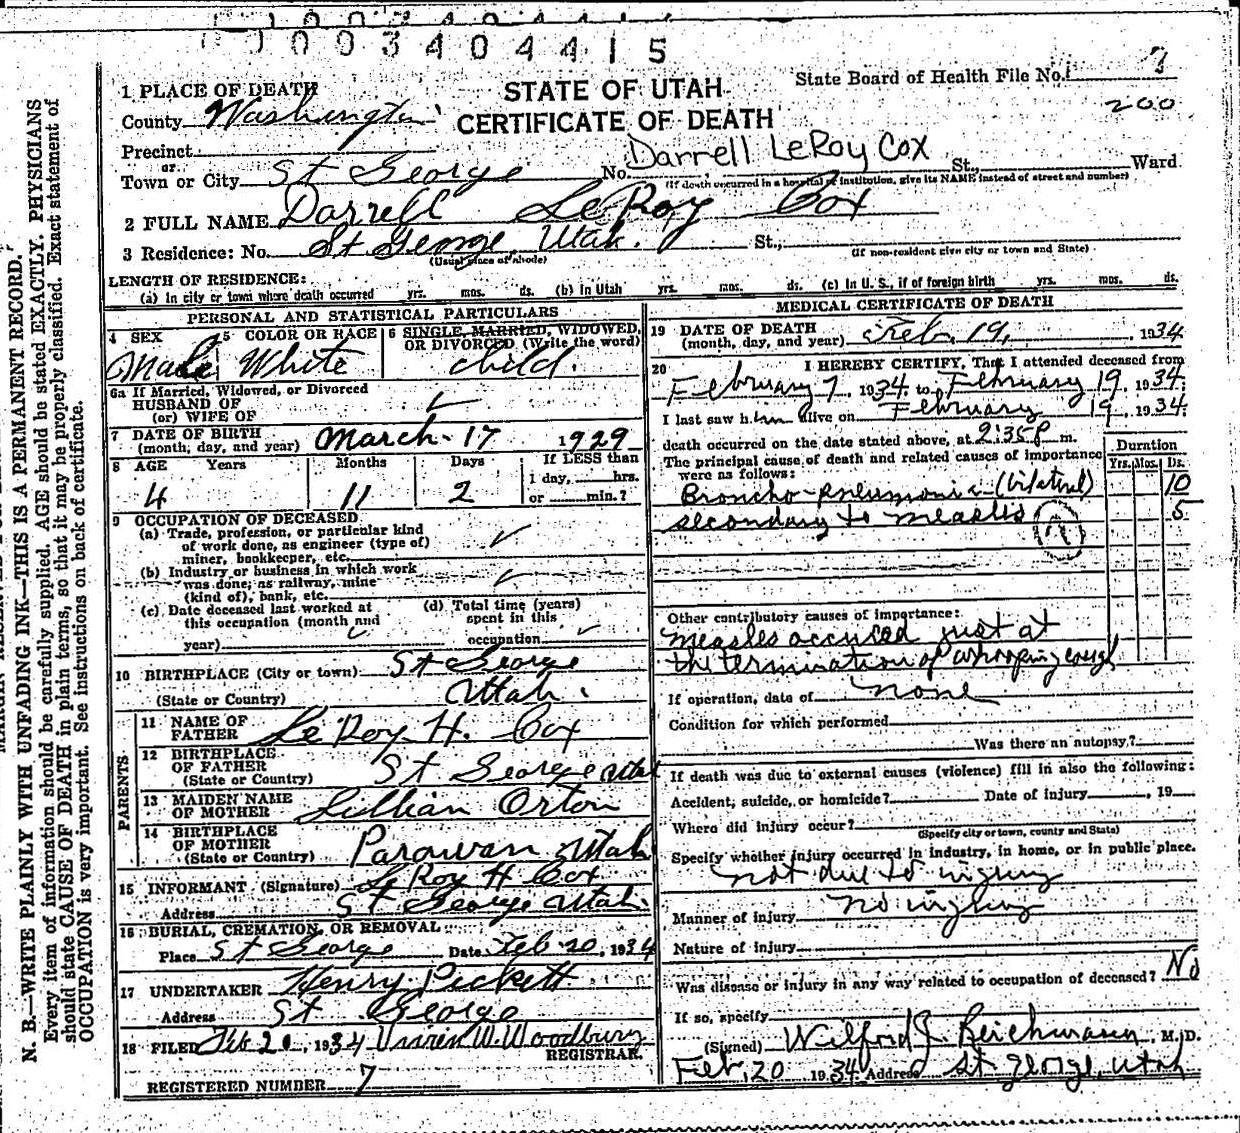 1003404415
State Board of Health File No. 7
200
STATE OF UTAH
CERTIFICATE OF DEATH
1 PLACE OF DEATH
County Washington
Precinct
or
Town or City St George No. Darrell LeRoy Cox St., Ward
(If death occurred in a hospital or institution, give its NAME instead of street and number)
2 FULL NAME Darrell LeRoy Cox
3 Residence: No. St George, Utah. St.,
(Usual place of abode) (If non-resident give city or town and State)
LENGTH OF RESIDENCE:
(a) In city or town where death occurred yrs. mos. ds. (b) In Utah yrs. mos. ds. (c) In U. S., if of foreign birth yrs. mos. ds.
PERSONAL AND STATISTICAL PARTICULARS
4 SEX Male
5 COLOR OR RACE White
6 SINGLE, MARRIED, WIDOWED, OR DIVORCED (Write the word)
child.
6a If Married, Widowed, or Divorced
HUSBAND OF
(or) WIFE OF
7 DATE OF BIRTH
(month, day, and year) March - 17 1929
8 AGE Years Months Days If LESS than
1 day, hrs.
4 11 2 or min.?
9 OCCUPATION OF DECEASED
(a) Trade, profession, or particular kind
of work done, as engineer (type of)
miner, bookkeeper, etc.
(b) Industry or business in which work
was done, as railway, mine
(kind of), bank, etc.
(c) Date deceased last worked at
this occupation (month and
year)
(d) Total time (years)
spent in this
occupation
10 BIRTHPLACE (City or town) St George
(State or Country) Utah.
PARENTS
11 NAME OF
FATHER Le Roy H. Cox
12 BIRTHPLACE
OF FATHER
(State or Country) St George Utah
13 MAIDEN NAME
OF MOTHER Lillian Orton
14 BIRTHPLACE
OF MOTHER
(State or Country) Parowan Utah
15 INFORMANT (Signature) Le Roy H Cox
Address St George Utah.
16 BURIAL, CREMATION, OR REMOVAL
Place St George Date Feb 20, 1934
17 UNDERTAKER Henry Pickett
Address St George
18 FILED Feb 20, 1934 Vivien W. Woodbury
REGISTRAR.
REGISTERED NUMBER 7
MEDICAL CERTIFICATE OF DEATH
19 DATE OF DEATH
(month, day, and year) Feb. 19, 1934
20 I HEREBY CERTIFY, That I attended deceased from
February 7, 1934 to February 19, 1934.
I last saw him alive on February 19, 1934.
death occurred on the date stated above, at 2:35 P m.
The principal cause of death and related causes of importance
were as follows:
Duration
Yrs. Mos. Ds.
Broncho-pneumonia (bilateral) 10
secondary to measles 5
Other contributory causes of importance:
Measles occurred just at
the termination of whooping cough
If operation, date of none
Condition for which performed
Was there an autopsy?
If death was due to external causes (violence) fill in also the following:
Accident, suicide, or homicide? Date of injury , 19
Where did injury occur?
(Specify city or town, county and State)
Specify whether injury occurred in industry, in home, or in public place.
not due to injury
Manner of injury no injury
Nature of injury
Was disease or injury in any way related to occupation of deceased? No
If so, specify
(Signed) Wilford J. Reichmann, M. D.
Feb, 20 1934 Address St George, Utah
N. B.—WRITE PLAINLY WITH UNFADING INK—THIS IS A PERMANENT RECORD.
Every item of information should be carefully supplied. AGE should be stated EXACTLY. PHYSICIANS
should state CAUSE OF DEATH in plain terms, so that it may be properly classified. Exact statement of
OCCUPATION is very important. See instructions on back of certificate.